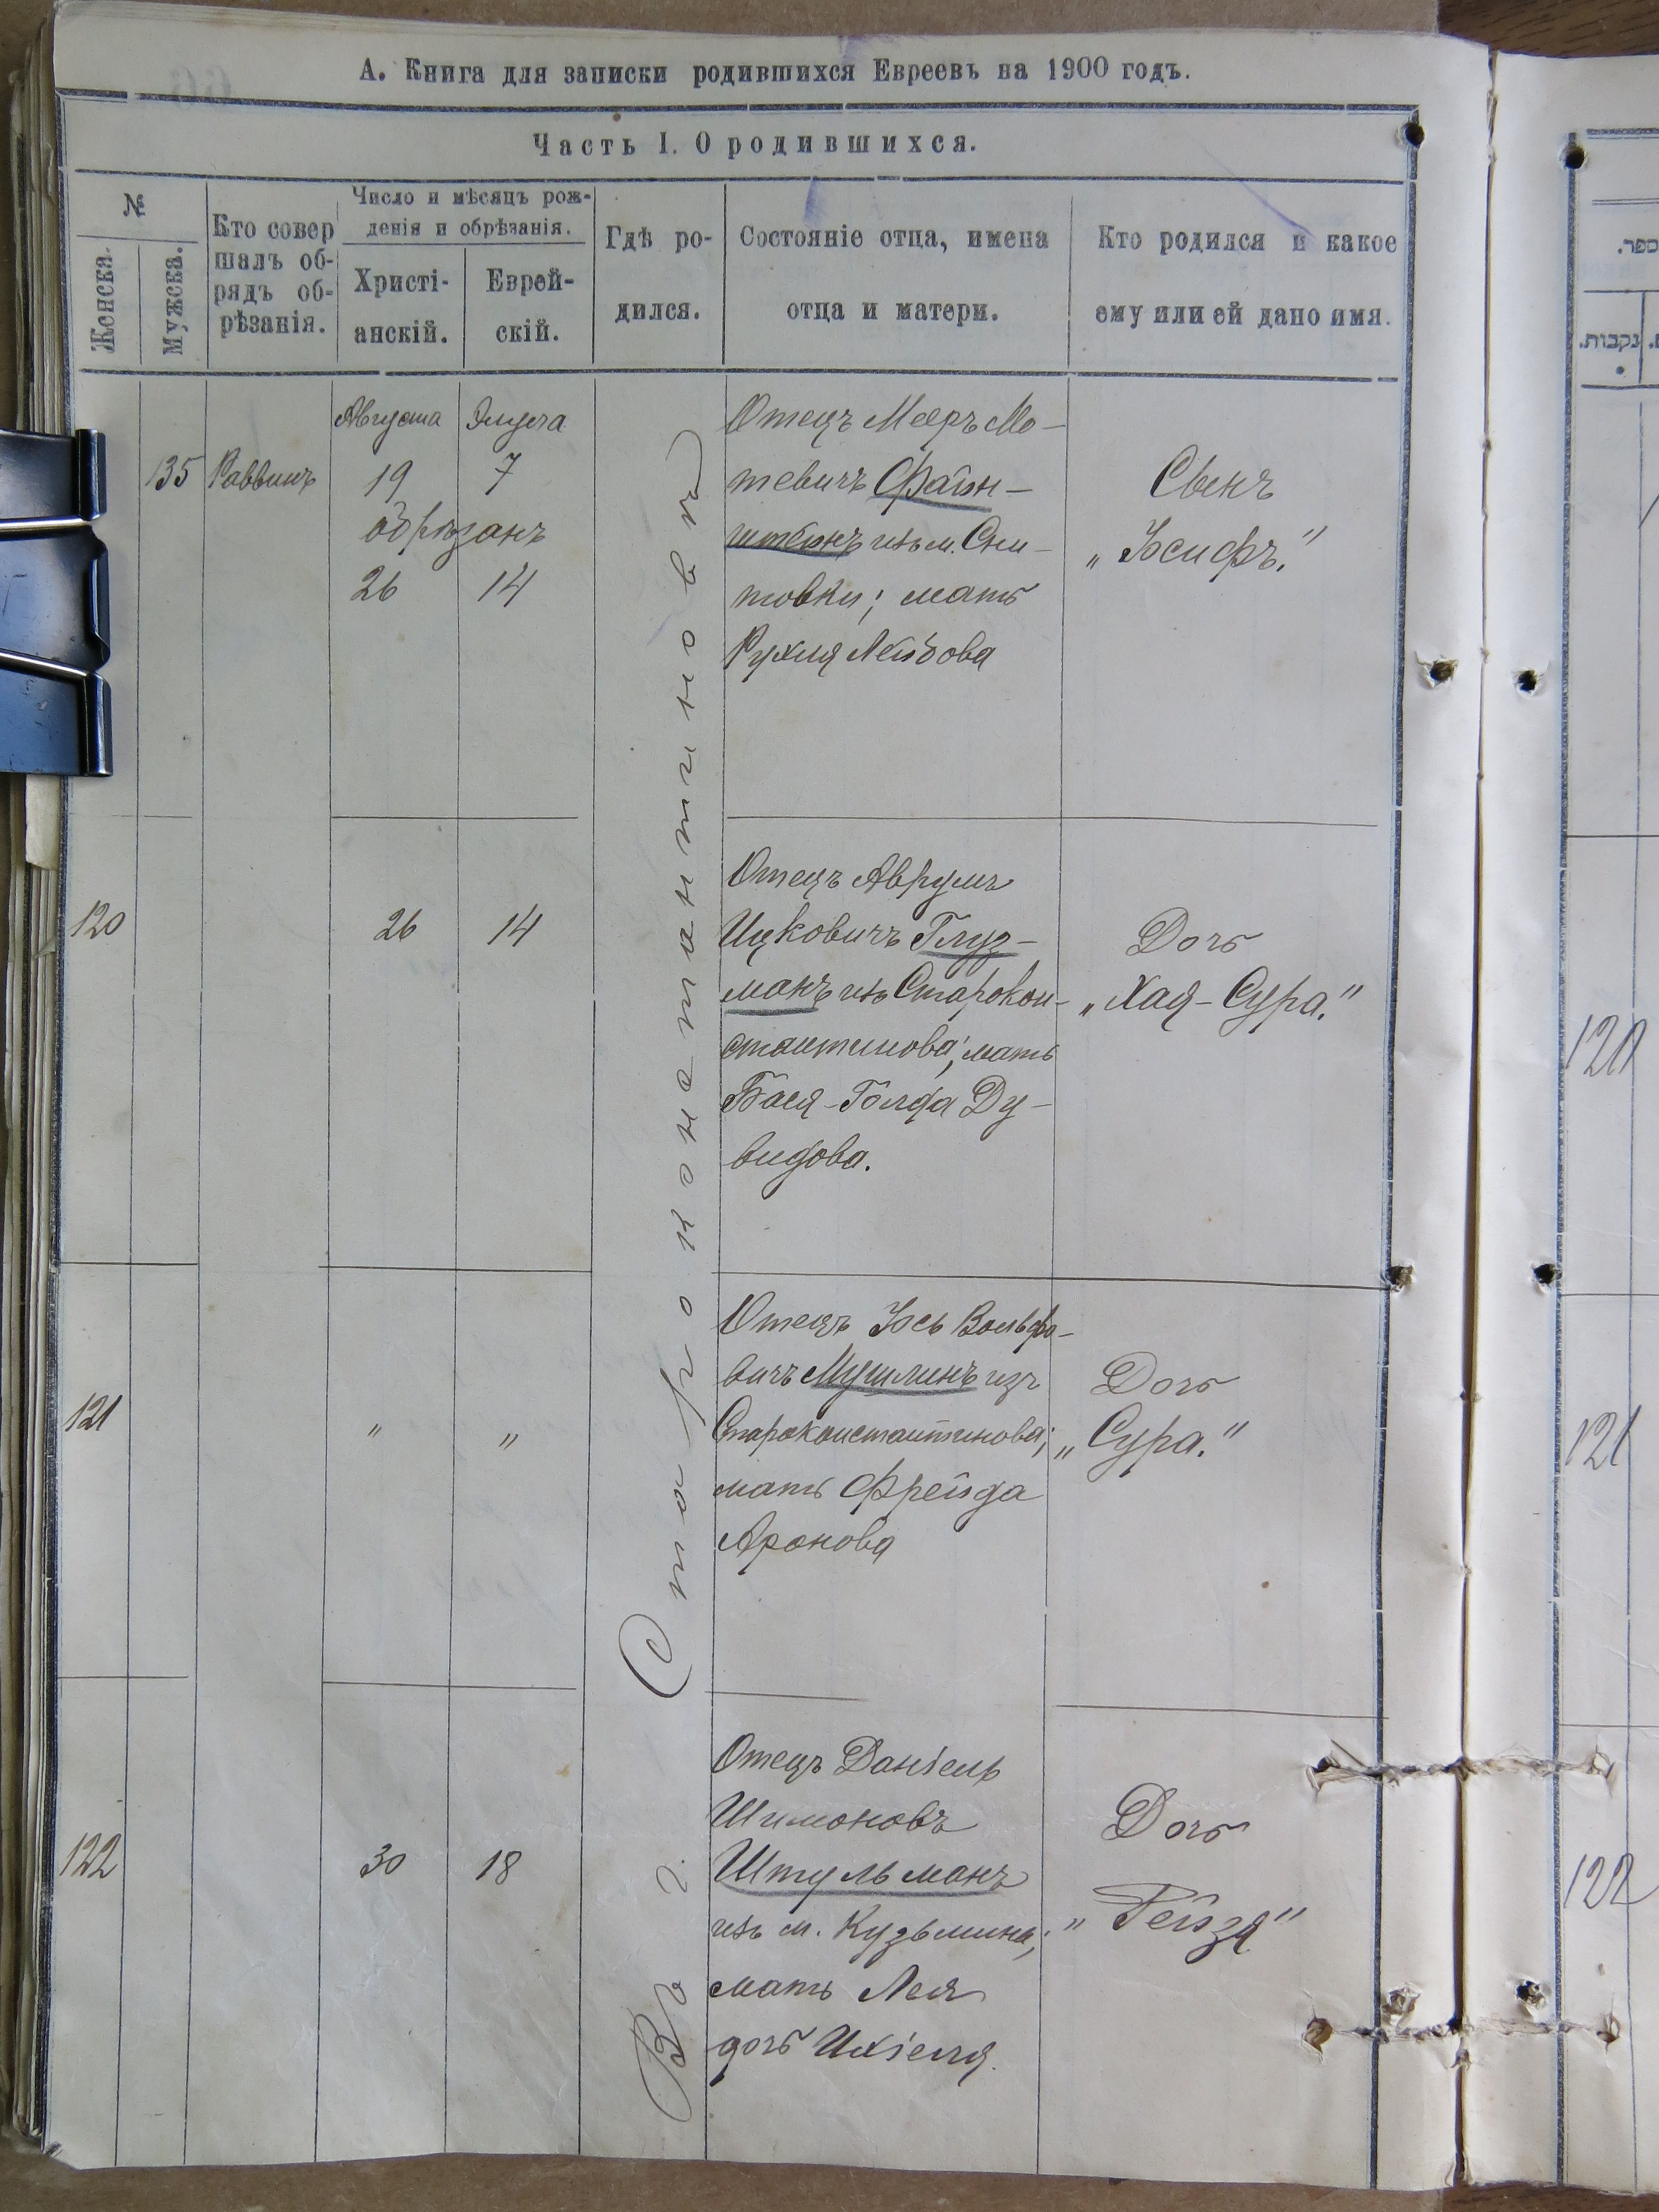 А. Книга для записки родившихся Евреевъ на 1900 годъ.
Часть I. О родившихся.
№
Женска.
Мужска.
Кто совер
шалъ об-
рядъ об-
рѣзанія.
Число и мѣсяцъ рож-
денія и обрѣзанія.
Христі-
анскій.
Еврей-
скій.
Гдѣ ро-
дился.
Состояніе отца, имена
отца и матери.
Кто родился и какое
ему или ей дано имя.
135
Раввинъ
Августа Элула
19 7
обрѣзанъ
26 14
Отецъ Мееръ Мо-
тевичъ Файн-
штейнъ изъ м. Сни-
товки; мать
Рухля Лейбова
Сынъ
„Іосифъ."
120
26 14
Отецъ Аврумъ
Ицковичъ Глуз-
манъ изъ Старокон-
стантинова; мать
Бася-Голда Ду-
видова.
Дочь
„Хая-Сура."
121
" "
Отецъ Іось Вольфо-
вичъ Мушлинъ изъ
Староконстантинова;
мать Фрейда
Аронова
Дочь
„Сура."
122
30 18
Отецъ Даніель
Шимоновъ
Штульманъ
изъ м. Кузьмина;
мать Лея
дочь Ихіеля.
Дочь
"Рейзя"
Въ г. Староконстантиновѣ
ספר.
נקבות.
120
121
122